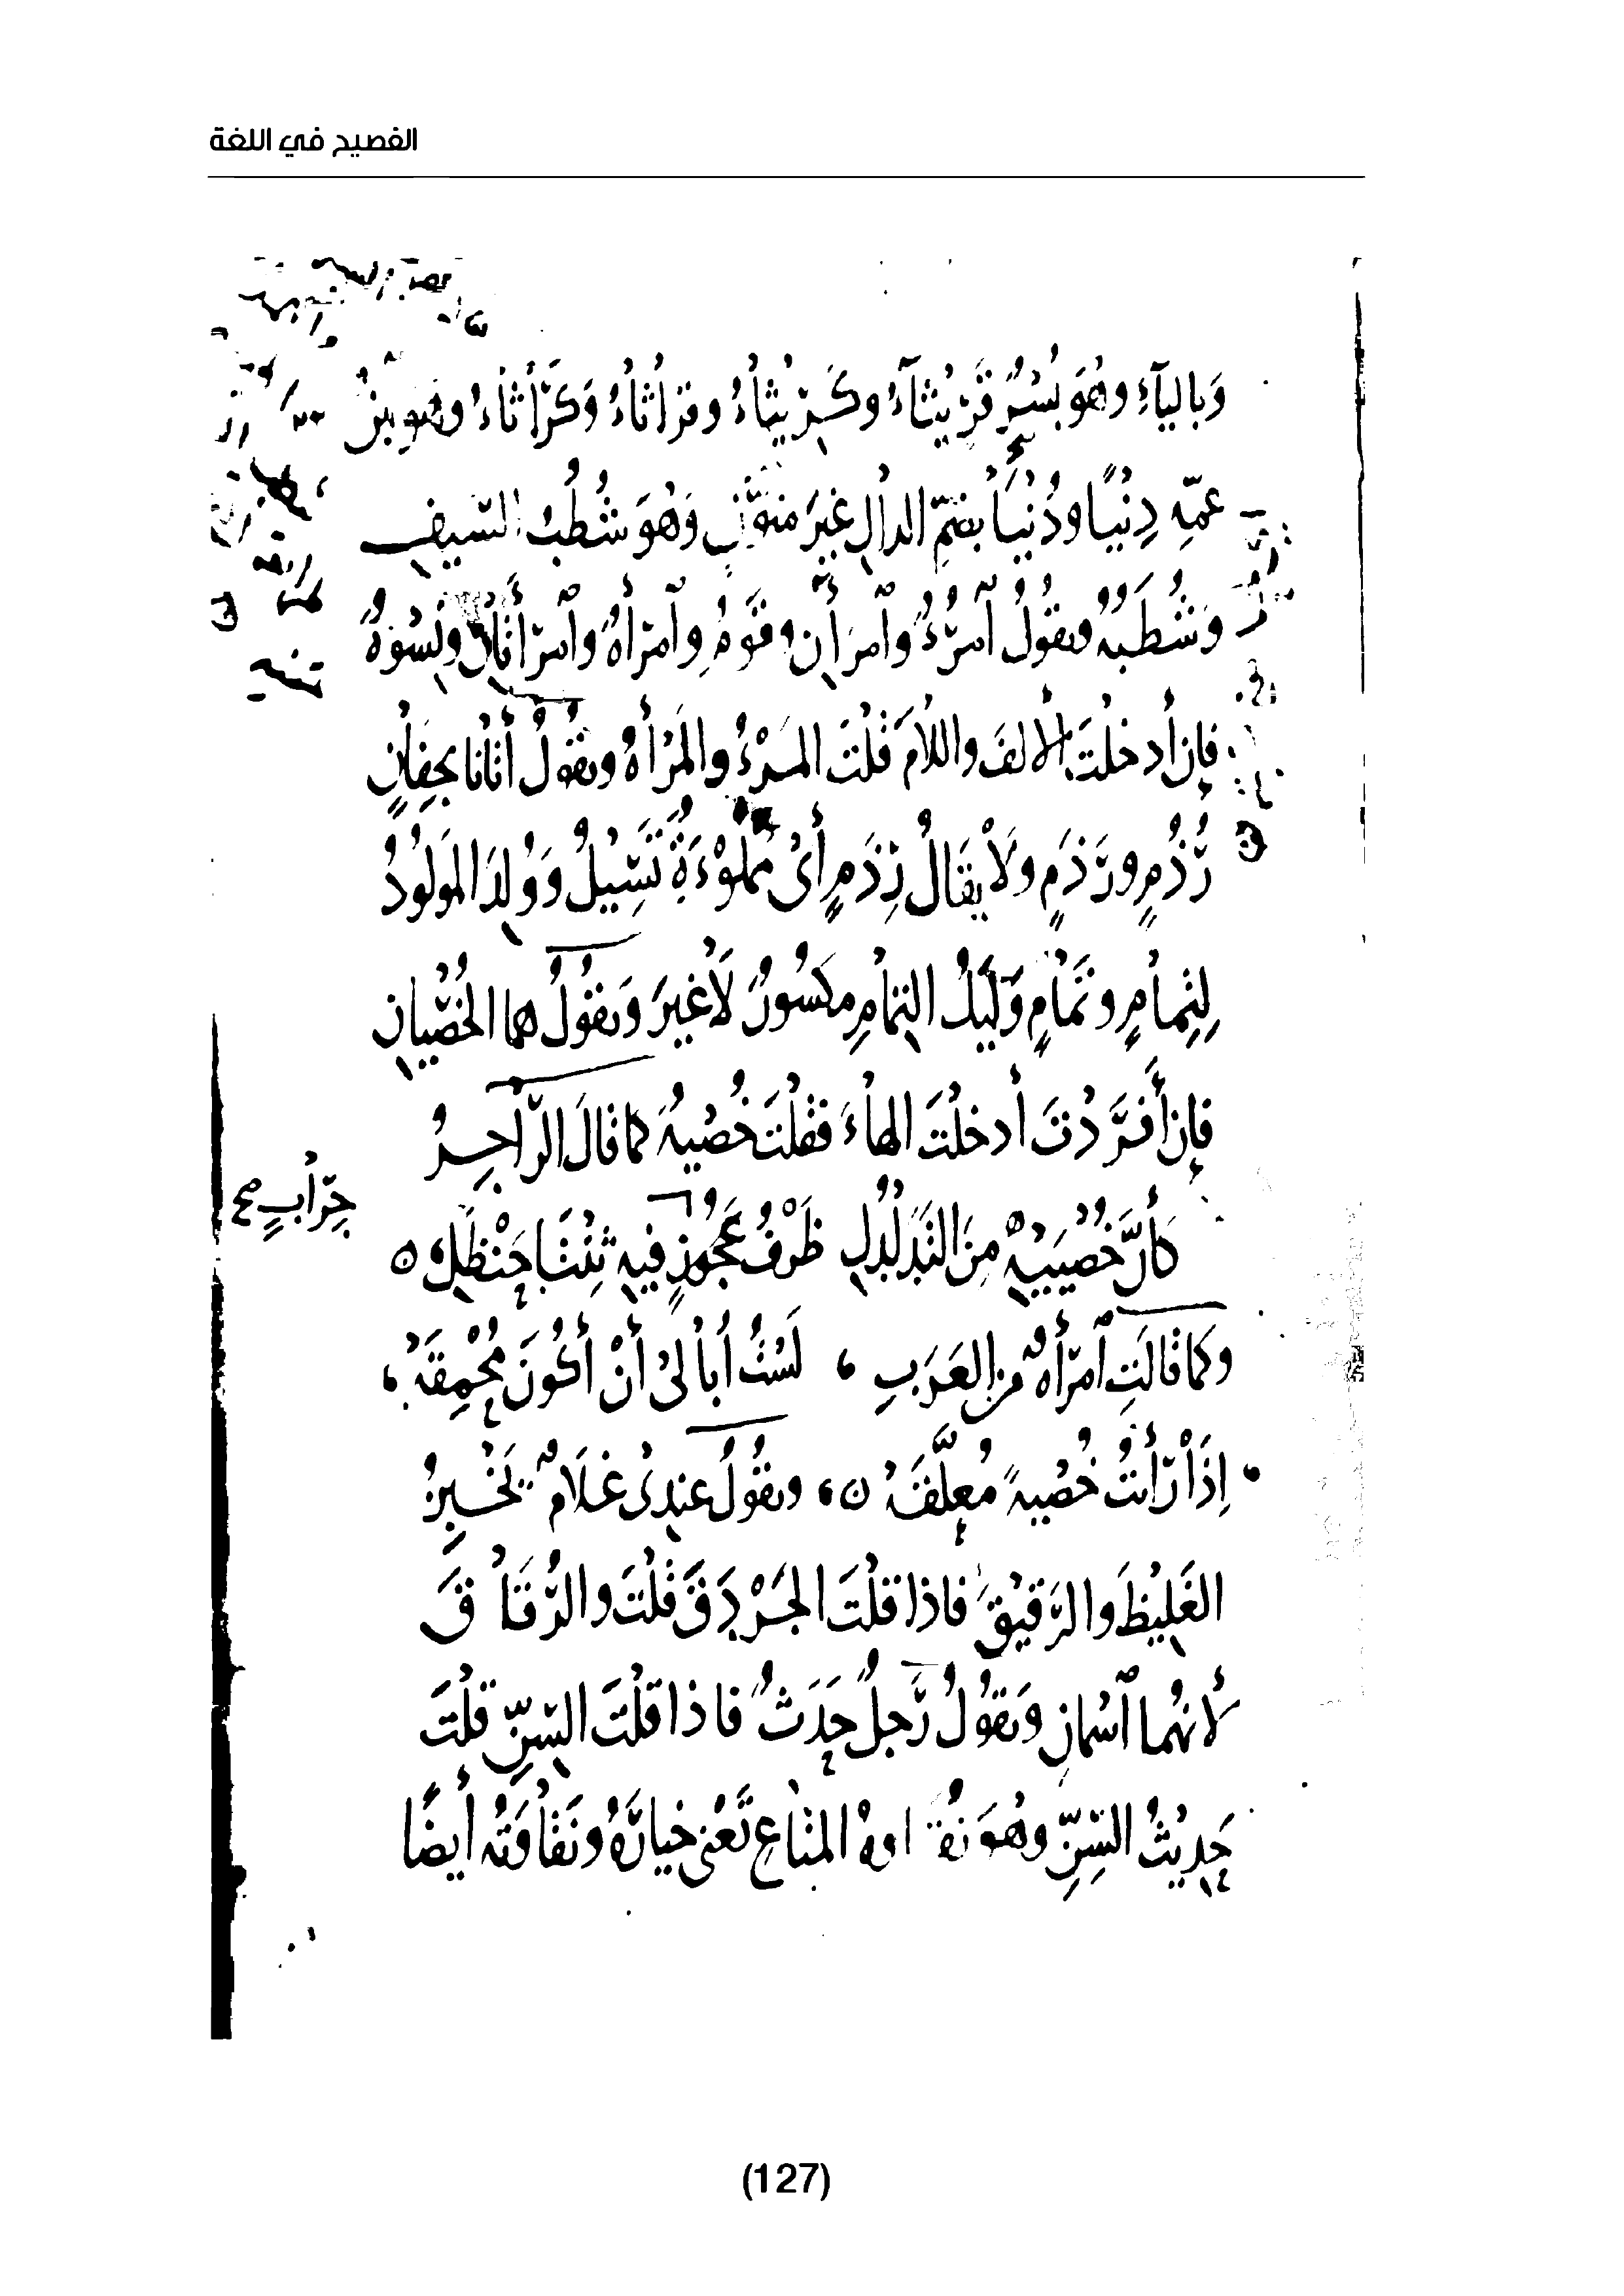 الفصيح في اللغة
وَبالياءِ وهُوَ بُسْرٌ قَرِيْثَاءُ وكَرِيْثَاءُ وقَرَاثَاءُ وَكَرَاثَاءُ وهو ابنُ
عمِّهِ دِنْيًا ودُنْيَا بضمِّ الدالِ غيرَ منوَّنٍ وَهُوَ شُطُبُ السَّيفِ
وَشُطَبُهُ وتقُولُ ٱمْرُؤٌ وٱمرَأَانِ وقَومٌ وٱمرَأَةٌ وٱمرَأَتَانِ ونِسْوَةٌ
فإن أدخلْتَ الألفَ واللامَ قُلْتَ المَرْءُ والمَرْأَةُ وتقُولُ أتَانَا بجِفَانٍ
رُذُمٍ ورَذَمٍ ولَا يقَالُ رِذَمٍ أَىْ مَمْلُوْءَةٍ تَسِيْلُ وَوُلِدَ المَولُودُ
لِتِمَامٍ وتَمَامٍ وَلَيْلُ التِّمَامِ مكسُورٌ لَا غيرَ وَتقُولُ هما الخُصْيَانِ
فإن أَفرَدْتَ أدخلْتَ الهاءَ فقُلْتَ خُصْيَةٌ كما قالَ الرَّاجِزُ
كأنَّ خُصْيَيْهِ مِنَ التَّدَلْدُلِ ظَرْفُ عَجُوْزٍ فيهِ ثِنْتَا حَنْظَلِ ٥
جِرَابٍ صح
وكما قالَتِ ٱمرَأةٌ من العَرَبِ ، لَسْتُ أُبَالِىْ أنْ أكُونَ مُحْمِقَهْ ،
إذَا رَأَيْتُ خُصْيةً مُعلَّقَهْ ٥ ، وتقُولُ عندِىْ غلَامٌ يَخْبِزُ
الغَلِيْظَ والرَّقيْقَ فاذا قلْتَ الجَرْدَقَ قُلْتَ والرُّقَاقَ
لأنهُما ٱسْمانِ وَتقُولُ رَجلٌ حَدَثٌ فاذا قلْتَ السِّنِّ قلْتَ
حَدِيْثُ السِّنِّ وهُوَ نُقَاوةُ المتَاعِ تَعْنِى خيارَهُ ونَقَاوَتُه أيضًا
(127)